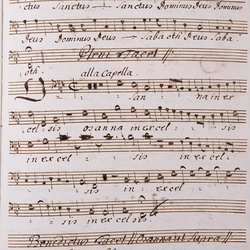 ctus Sanctus Sanctus Dominus Deus
Deus Dominus Deus Sabaoth Deus Saba
Pleni tacet
oth alla Capella.
O san na in ex
cel sis osanna in excel sis
in excel sis in ex
cel sis in excel
sis in excel sis.
Benedictus tacet Osanna ut supra